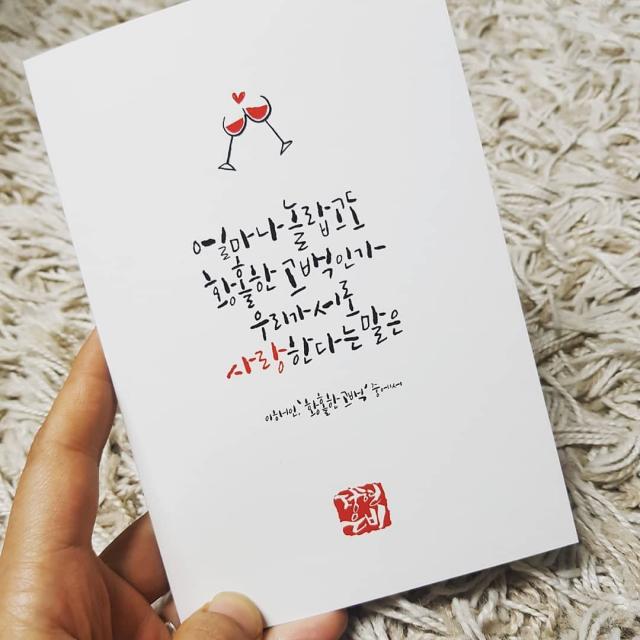 얼마나 놀랍고도
황홀한 고백인가
우리가 서로
사랑한다는 말은
이해인, "황홀한 고백" 중에서